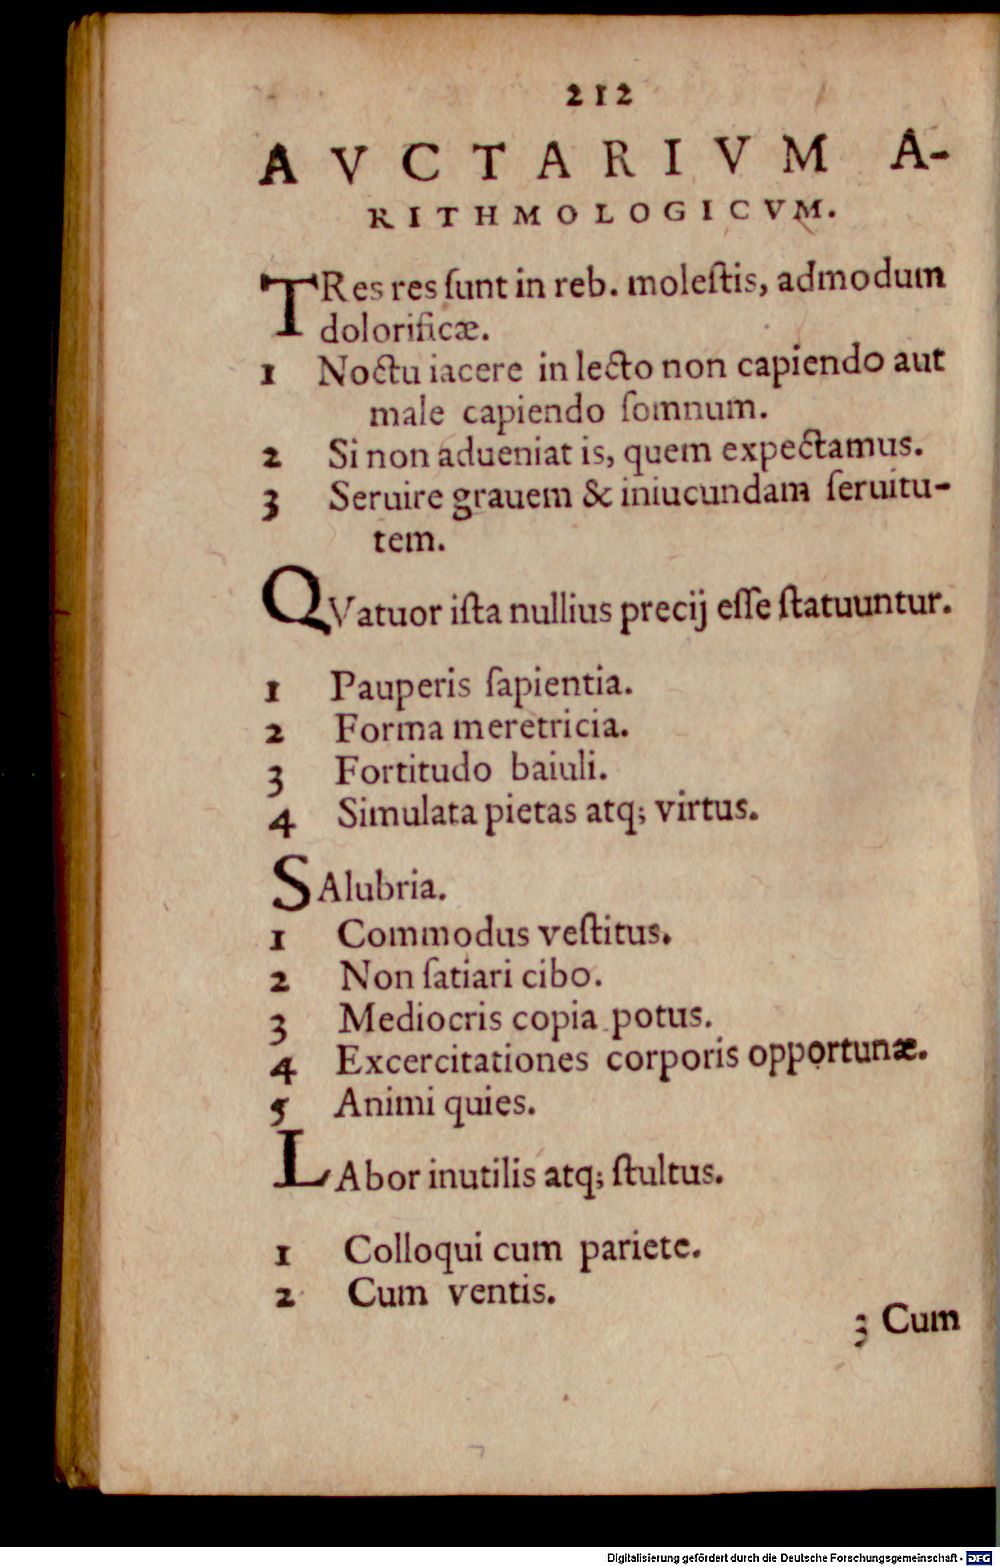 212
AVCTARIVM A-
RITHMOLOGICVM.
TRes res ſunt in reb. moleſtis, admodum
dolorificæ.
1 Noctu iacere in lecto non capiendo aut
male capiendo ſomnum.
2 Si non adueniat is, quem expectamus.
3 Seruire grauem & iniucundam ſeruitu-
tem.
QVatuor iſta nullius precij eſſe ſtatuuntur.
1 Pauperis ſapientia.
2 Forma meretricia.
3 Fortitudo baiuli.
4 Simulata pietas atq; virtus.
SAlubria.
1 Commodus veſtitus.
2 Non ſatiari cibo.
3 Mediocris copia potus.
4 Excercitationes corporis opportunæ.
5 Animi quies.
LAbor inutilis atq; ſtultus.
1 Colloqui cum pariete.
2 Cum ventis.
3 Cum
Digitalisierung gefördert durch die Deutsche Forschungsgemeinschaft - DFG